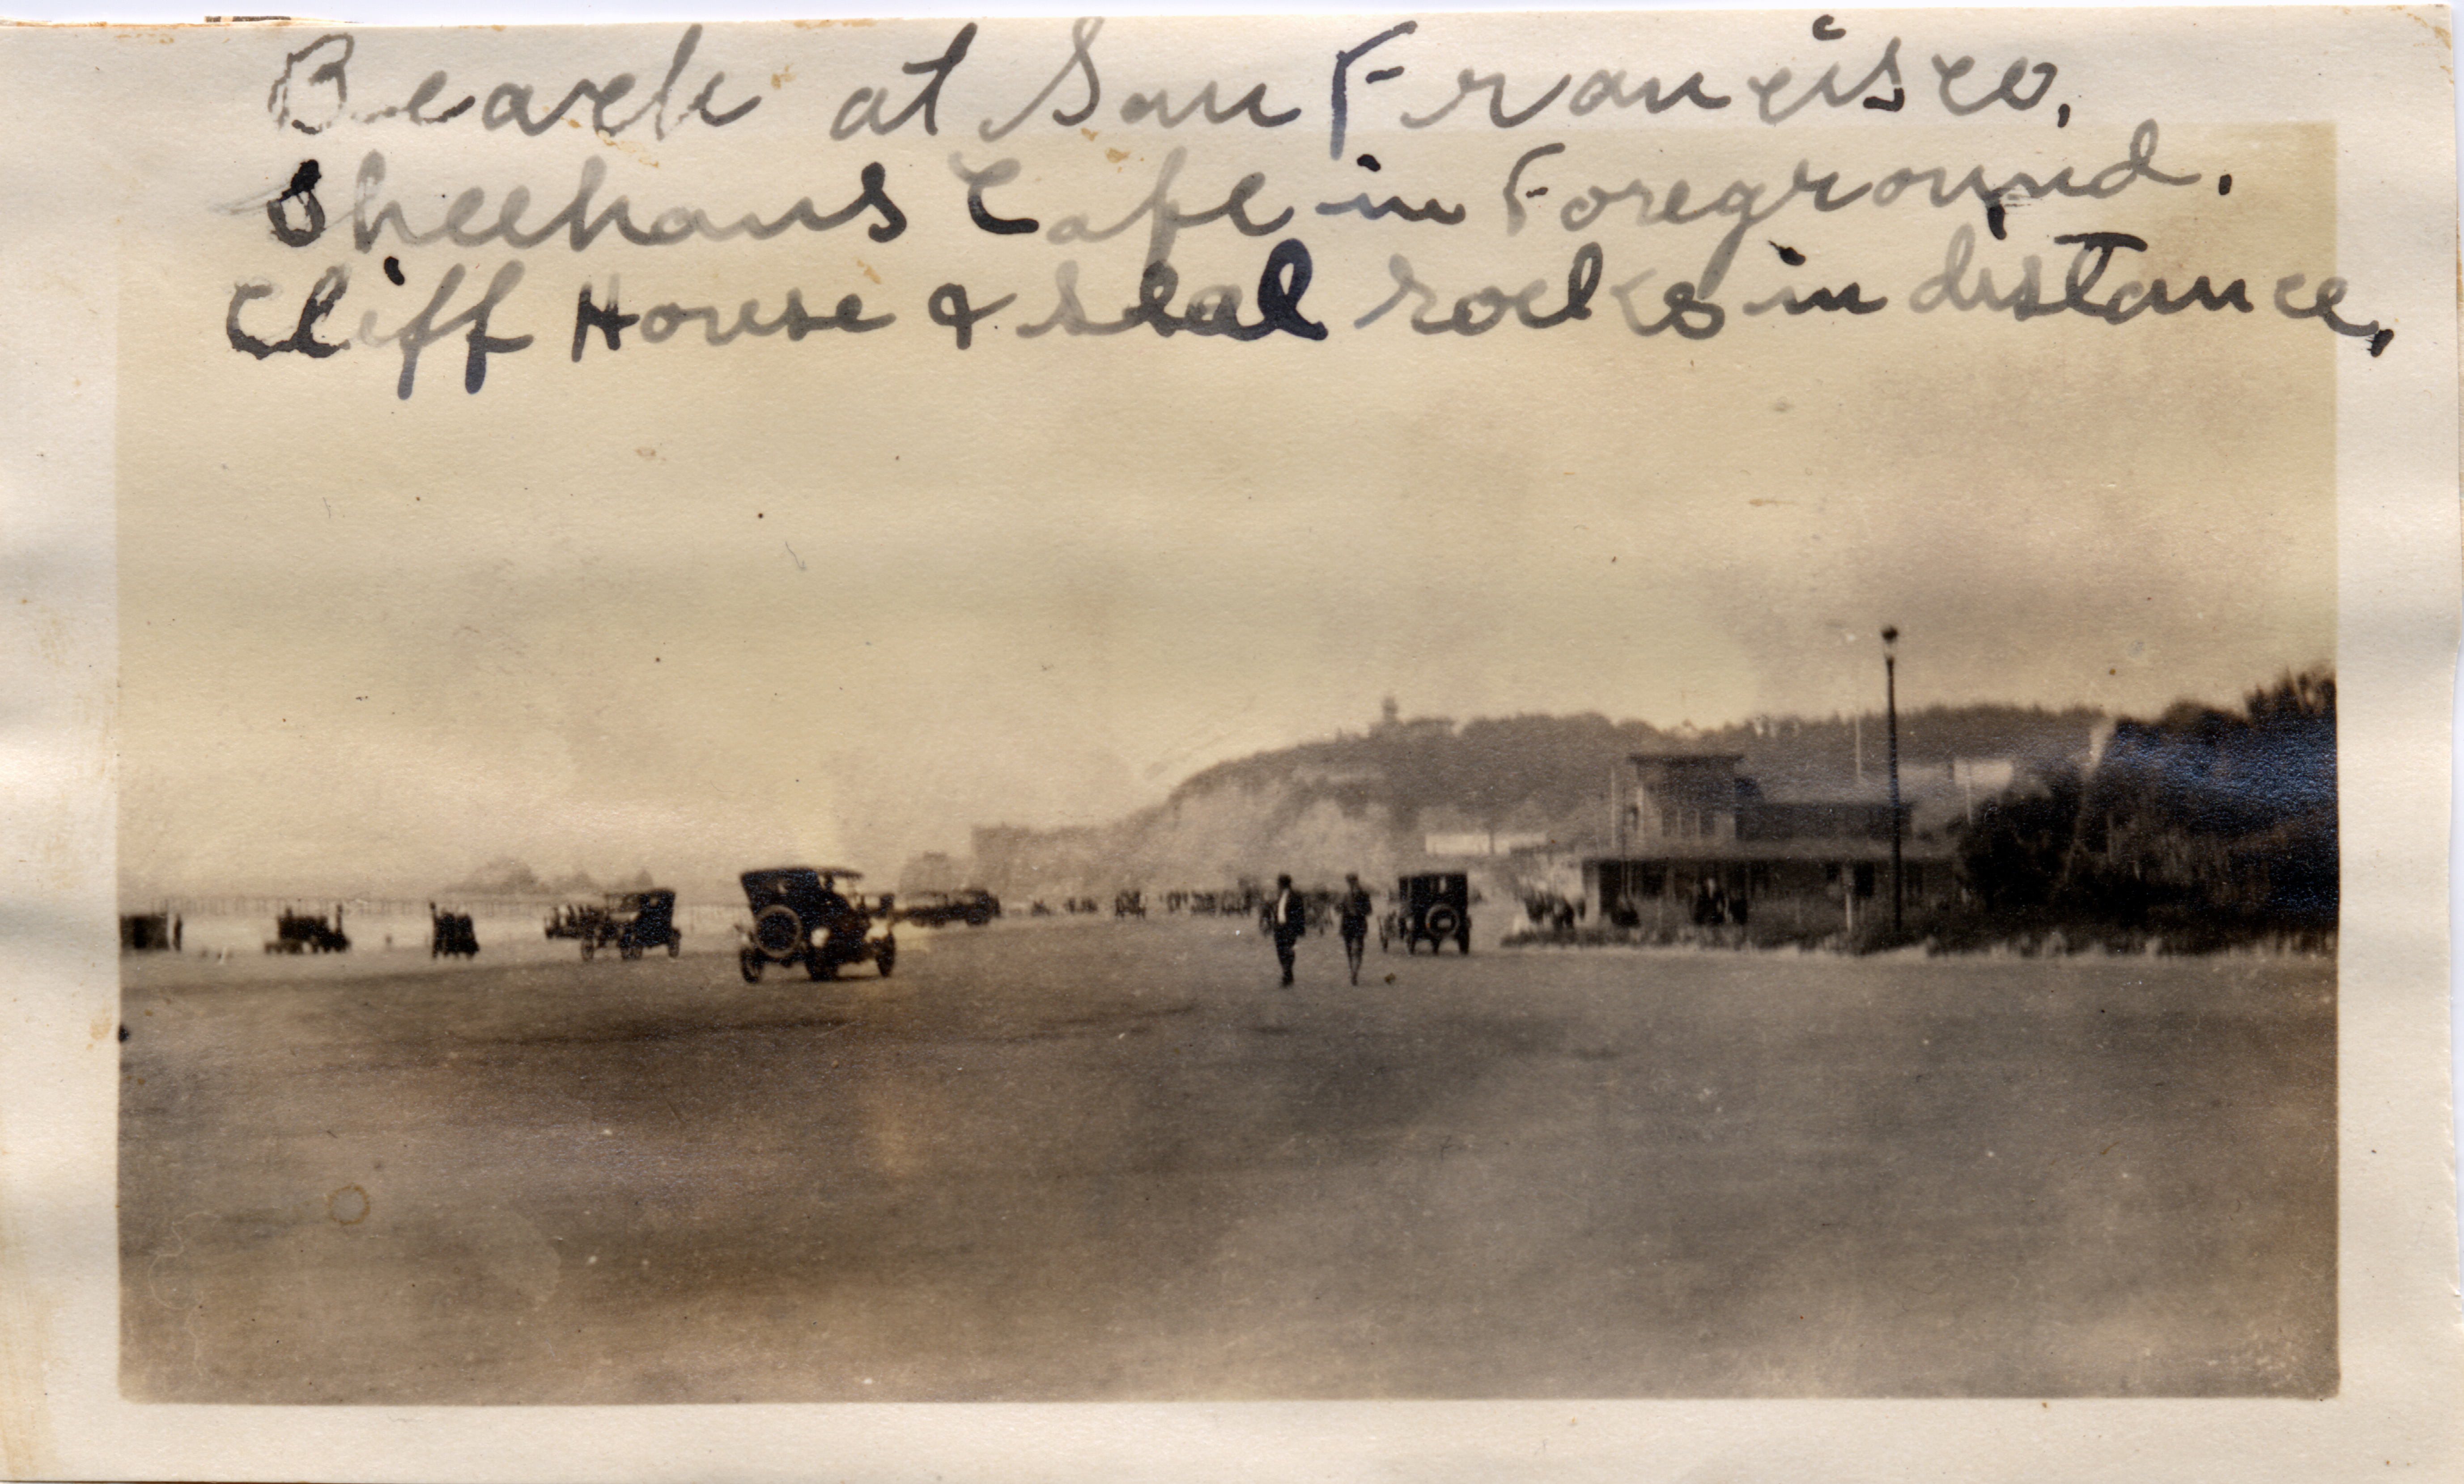 Beach at San Francisco,
Sheehans Cafe in Foreground.
Cliff House & seal rocks in distance,